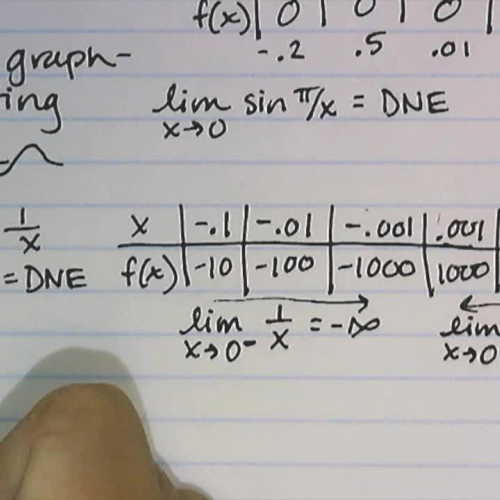 f(x) | 0 | 0 | 0
-.2 .5 .01
graph-
ing
lim sin π/x = DNE
x→0
1/x
= DNE
x | -.1 | -.01 | -.001 | .001
f(x) | -10 | -100 | -1000 | 1000
lim 1/x = -∞
x→0⁻
lim
x→0